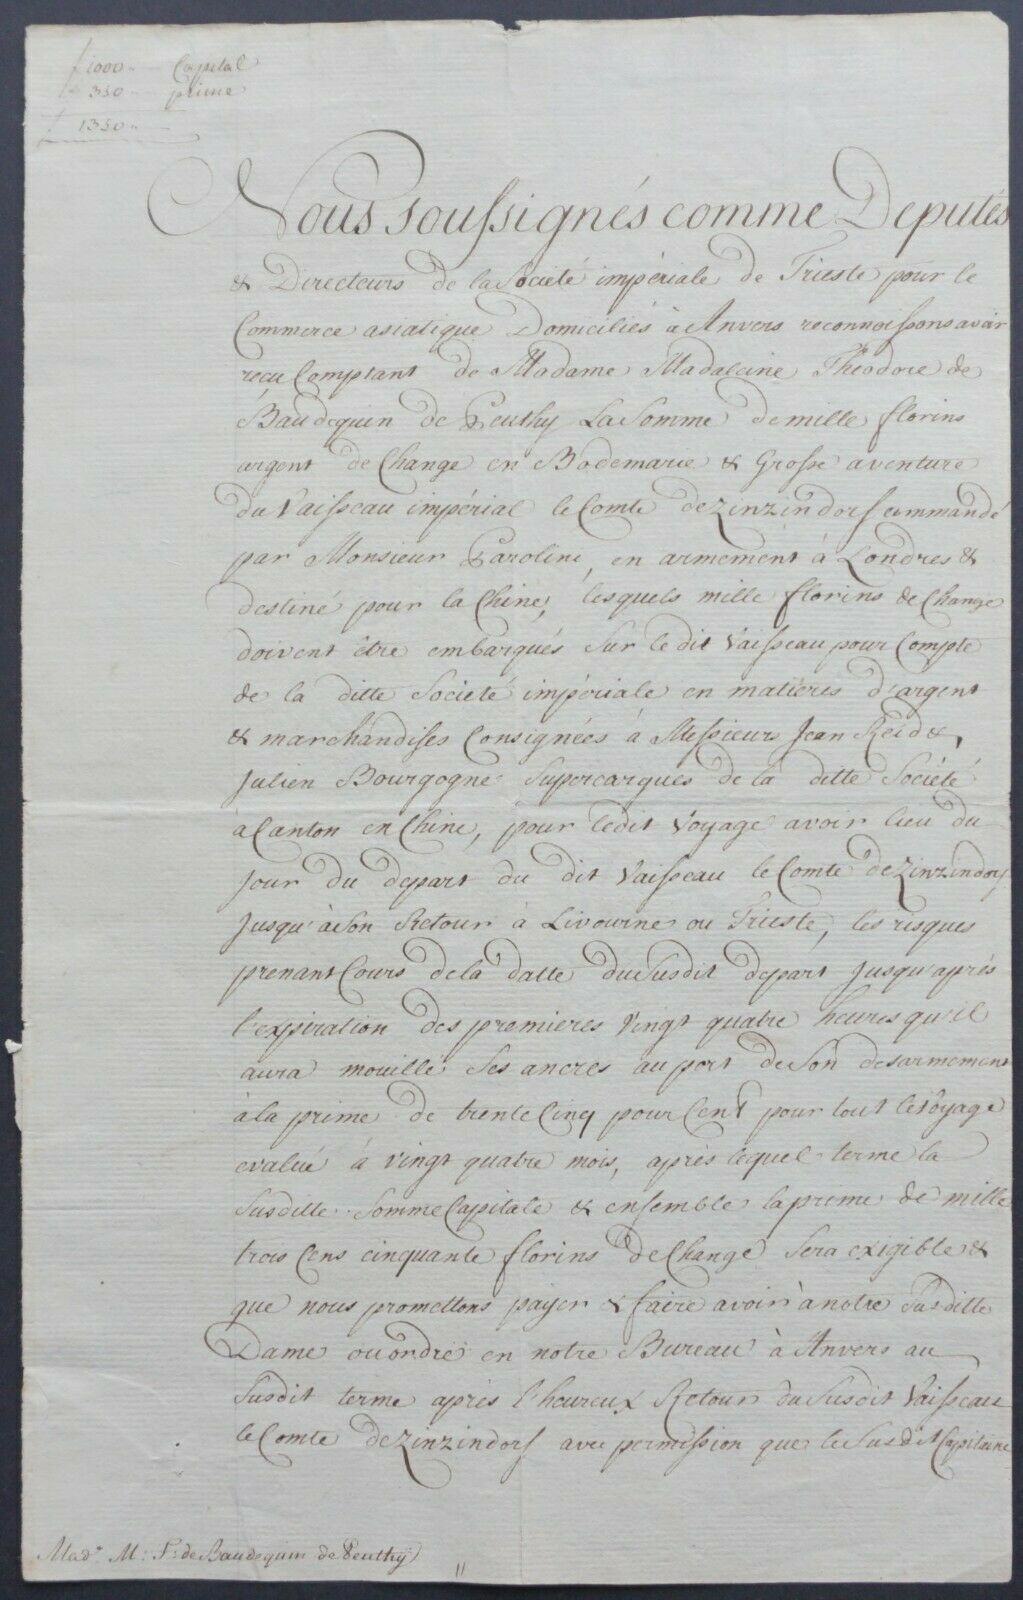 f 1000 " — Capital
" 350 " — prime
f 1350 " —
Nous soussignés comme Deputés
& Directeurs de la Societé impériale de Trieste pour le
Commerce asiatique Domiciliés à Anvers reconnoissons avoir
recu Comptant de Madame Madaleine Théodore de
Baudequin de Peuthy La Somme de mille florins
argent de Change en Bodemarie & Grosse aventure
du Vaisseau impérial le Comte de Zinzindorf commandé
par Monsieur Paroline, en armement à Londres &
destiné pour la Chine, lesquels mille florins de Change
doivent être embarqués sur le dit Vaisseau pour Compte
de la ditte Societé impériale en matieres d'argent
& marchandises Consignées à Messieurs Jean Reid &,
Julien Bourgogne Supercarques de la ditte Société
à Canton en Chine, pour ledit Voyage avoir lieu du
Jour du depart du dit Vaisseau le Comte de Zinzindorf
Jusqu'à son Retour à Livourne ou Trieste, les risques
prenant Cours de la datte du susdit depart Jusqu'après
l'expiration des premieres vingt quatre heures qu'il
aura mouillé ses ancres au port de son desarmement
à la prime de trente Cinq pour Cent pour tout le Voyage
evalué à vingt quatre mois, après lequel terme la
Susditte Somme Capitale & ensemble la prime de mille
trois Cens cinquante florins de Change sera exigible &
que nous promettons payer & faire avoir à notre Susditte
Dame ou ordre en notre Bureau à Anvers au
Susdit terme après l'heureux Retour du susdit Vaisseau
le Comte de Zinzindorf avec permission que le Susdit Capitaine
Made M: T: de Baudequin de Peuthÿ